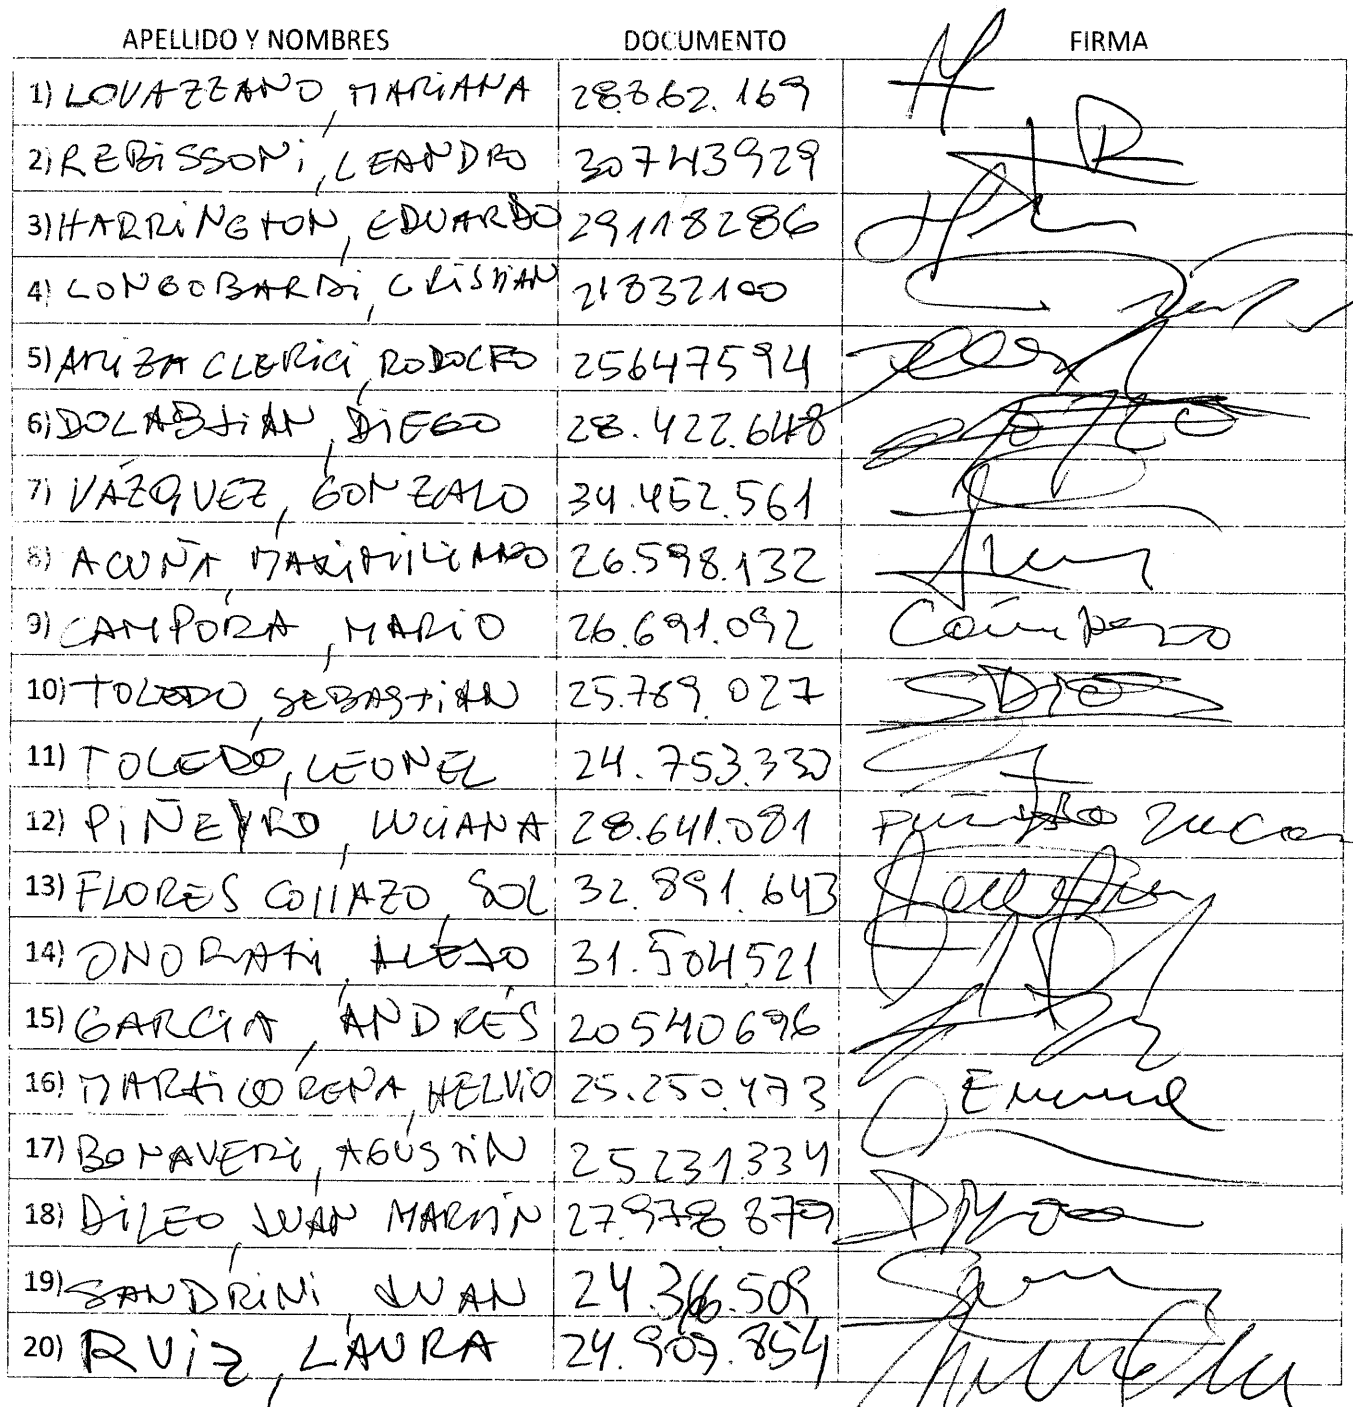 APELLIDO Y NOMBRES DOCUMENTO FIRMA
1) LOVAZZANO, MARIANA 28.862.169
2) REBISSONI, LEANDRO 30743929
3) HARRINGTON, EDUARDO 29118286
4) LONGOBARDI, CRISTIAN 21832100
5) ARIZA CLERICI, RODOLFO 25647594
6) DOLABJIAN, DIEGO 28.422.648
7) VÁZQUEZ, GONZALO 34.452.561
8) ACUÑA MAXIMILIANO 26.598.132
9) CAMPORA, MARIO 26.691.092
10) TOLEDO, SEBASTIÁN 25.789.027
11) TOLEDO, LEONEL 24.753.330
12) PIÑEYRO, LUCIANA 28.641.081
13) FLORES COLLAZO, SOL 32.891.643
14) ONORATI, ALEJO 31.504521
15) GARCIA, ANDRÉS 20540696
16) MARTICORENA, HELVIO 25.250.473
17) BONAVERI, AGUSTIN 25231.334
18) DILEO, JUAN MARTÍN 27.978.879
19) SANDRINI JUAN
20) RUIZ, LAURA 24.907.854